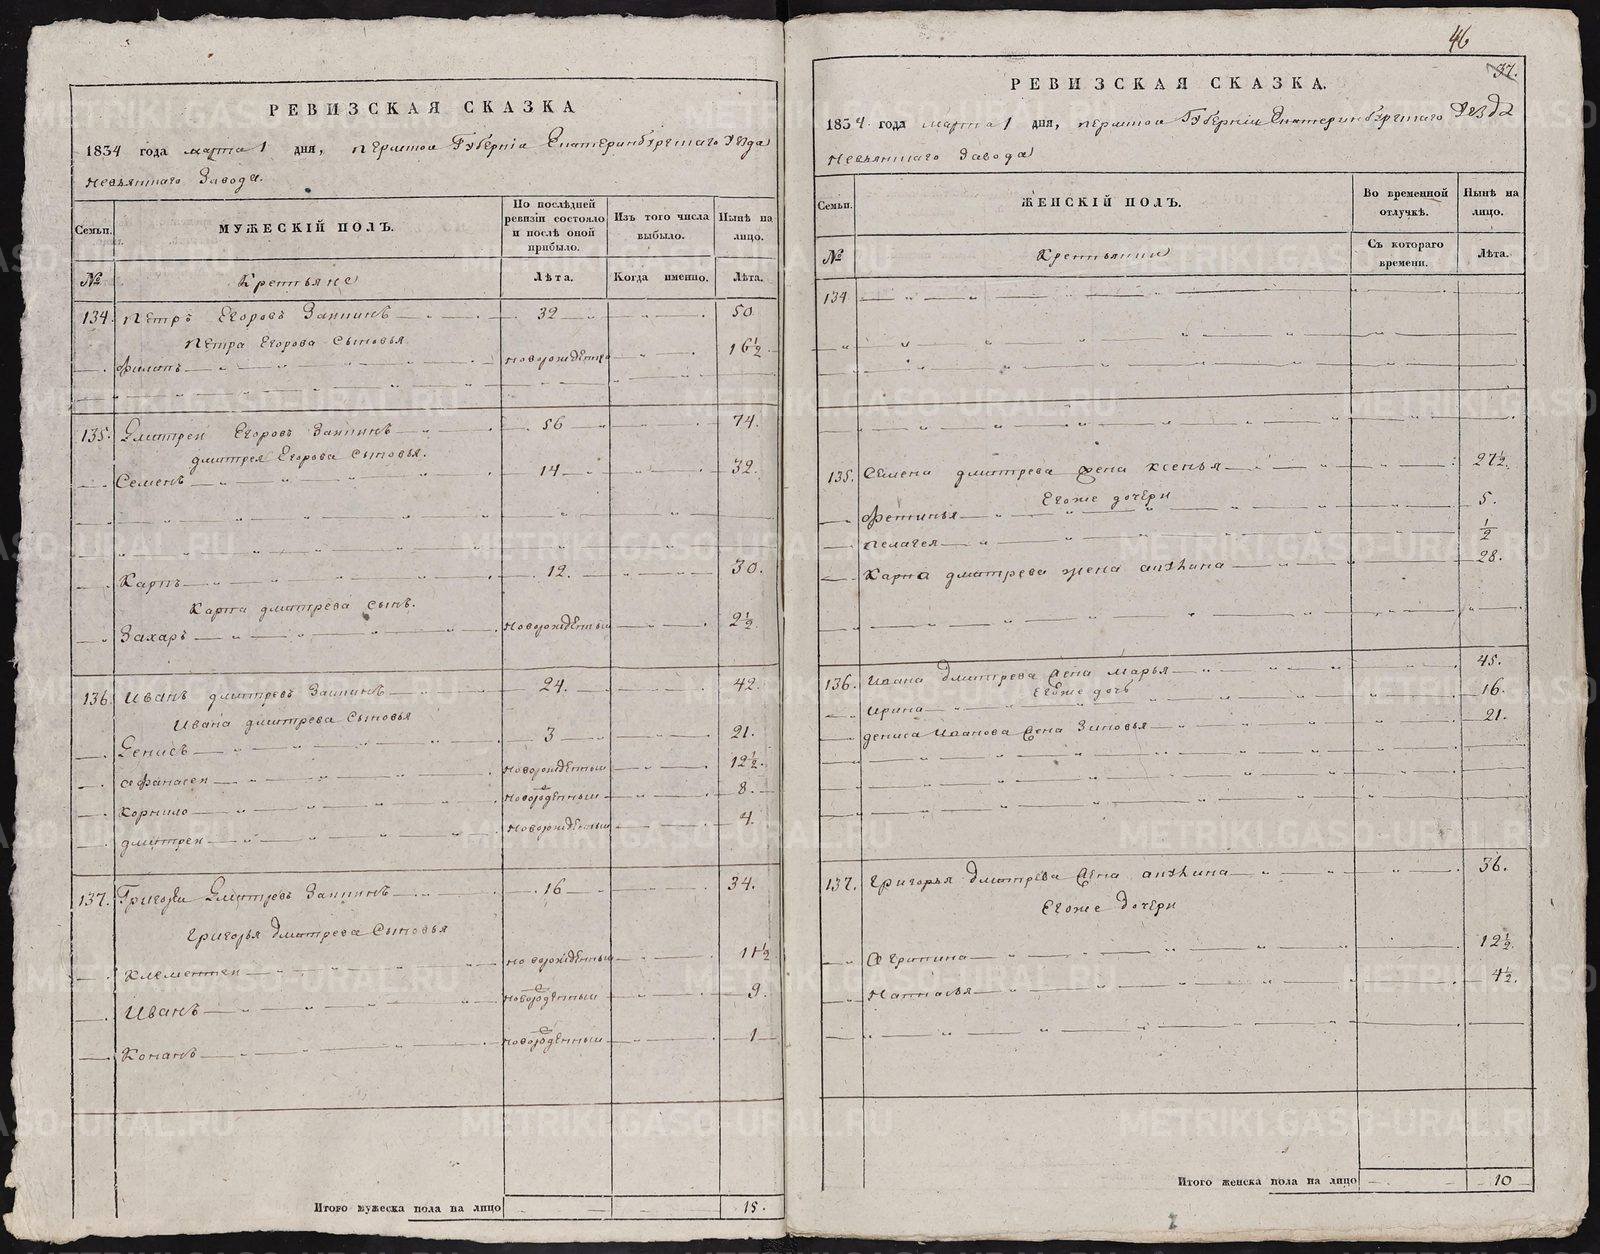 РЕВИЗСКАЯ СКАЗКА
1834 года марта 1 дня, Пермской Губернiи Екатеринбургскаго Уезда
Невьянскаго Завода.
Семьи.
МУЖЕСКIЙ ПОЛЪ.
По послѣдней ревизiи состояло и послѣ оной прибыло.
Изъ того числа выбыло.
Нынѣ на лицо.
№
Крестьяне
Лѣта.
Когда именно.
Лѣта.
134. Петръ Егоровъ 32 50
Петра Егорова сыновья
Филипъ новорожденной 16½
135. Дмитреи Егоровъ 56 74.
дмитрея Егорова сыновья.
Семенъ 14 32.
Карпъ 12. 30.
Карпа дмитрева сынъ.
Захаръ новорожденныи 2½
136. Иванъ дмитревъ 24. 42.
Ивана дмитрева сыновья
Денисъ 3 21.
Афанасеи новорожденныи 12½.
Корнило новорожденныи 8.
дмитреи новорожденныи 4.
137. Григореи Дмитревъ 16 34.
Григорья Дмитрева Сыновья
Клементеи новорожденныи 11½
Иванъ новорожденныи 9.
Конанъ новорожденныи 1
Итого мужеска пола на лицо 15.
46
37.
РЕВИЗСКАЯ СКАЗКА.
1834 года марта 1 дня, Пермской Губернiи Екатеринбургскаго Уезда
Невьянскаго Завода
Семьи.
ЖЕНСКIЙ ПОЛЪ.
Во временной отлучкѣ.
Нынѣ на лицо.
№
Крестьянки
Съ котораго времени.
Лѣта.
134
135. Семена дмитрева жена ксенья 27½.
Егоже дочери
Фетинья 5.
Пелагея ½
Карпа дмитрева жена 28.
136. Ивана Дмитрева жена Марья 45.
Егоже дочь
Ирина 16.
дениса Иванова жена Зиновья 21.
137. Григорья Дмитрева жена 36.
Егоже Дочери
Агрипина 12½.
Настасья 4½.
Итого женска пола на лицо 10
METRIKI.GASO-URAL.RU